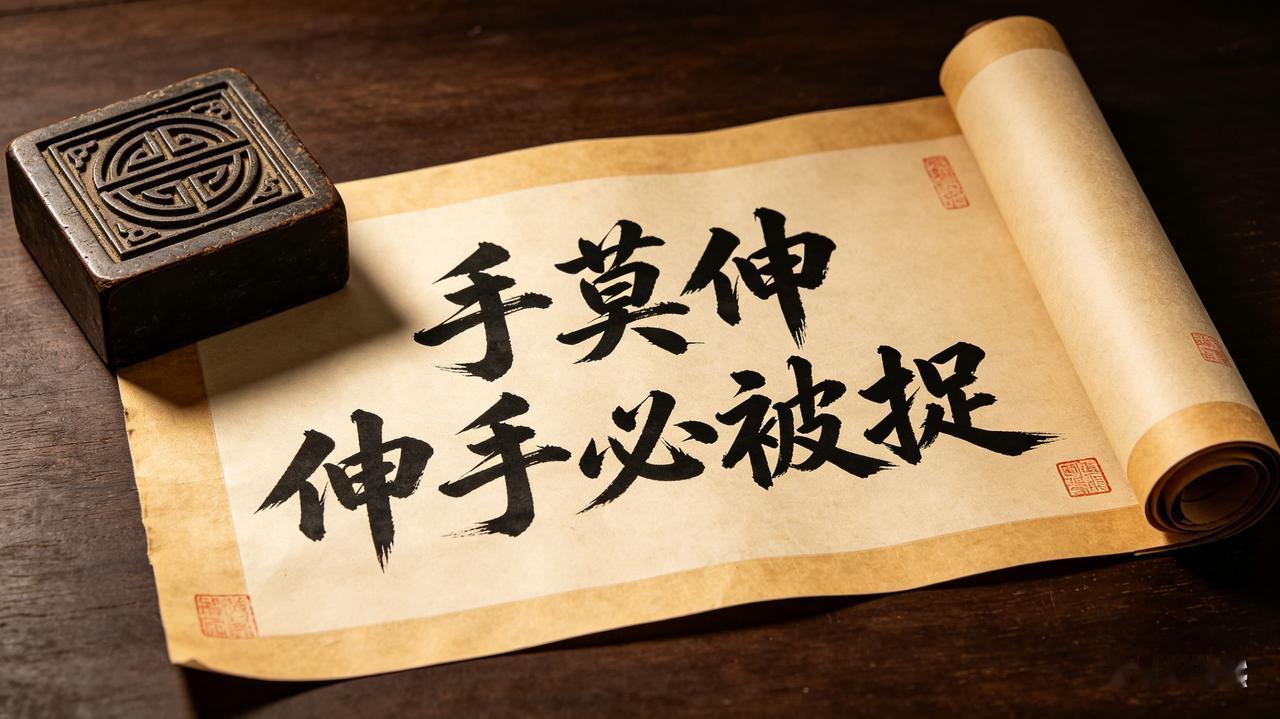 手莫伸
伸手必被捉